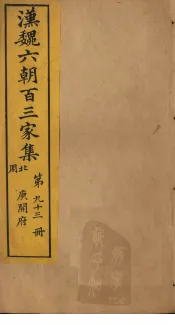 漢魏六朝百三家集
北周
庾開府
第九十三冊